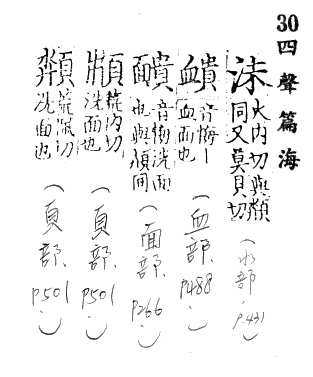 30 四聲篇海
沬 火內切與頮
同又莫貝切
(水部. P431)
音悔｜
血面也
(血部. P488)
靧 音悔洗面
也與頮同
(面部. P266)
荒內切
洗面也
(頁部. P501)
荒切
洗面也
(頁部. P501)